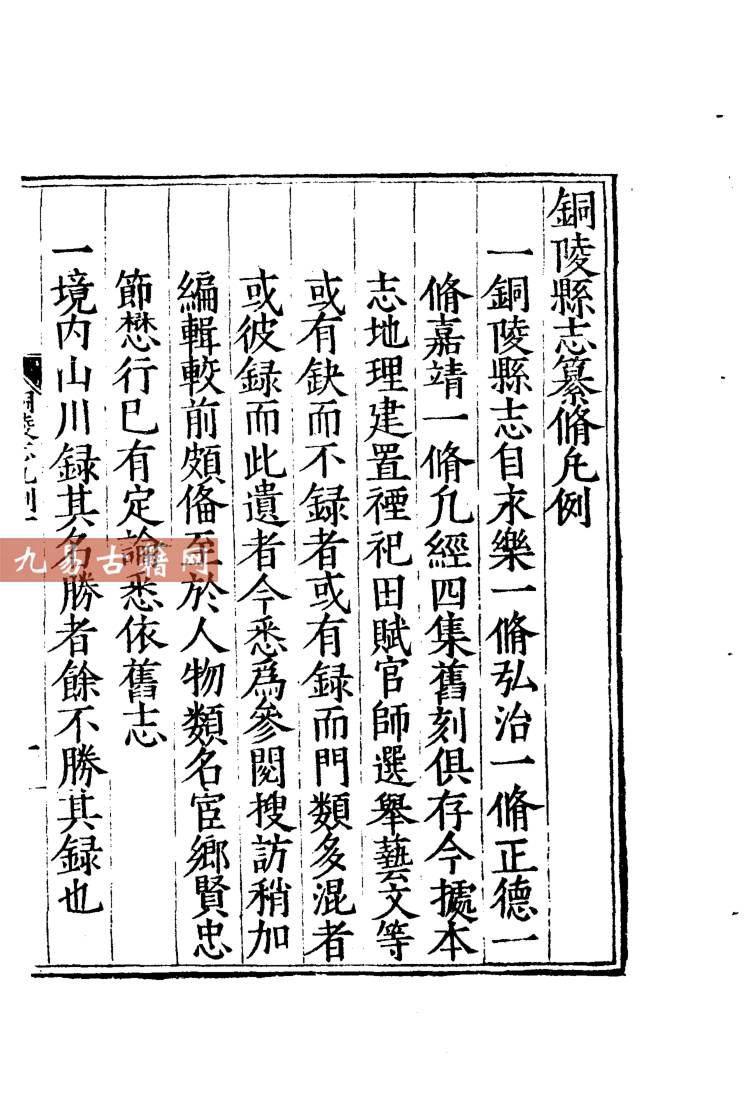 銅陵縣志纂脩凡例
一銅陵縣志自永樂一脩弘治一脩正德一
脩嘉靖一脩凡經四集舊刻俱存今據本
志地理建置禋祀田賦官師選舉藝文等
或有缺而不録者或有録而門類多混者
或彼録而此遺者今悉爲參閱搜訪稍加
編輯較前頗俻至於人物類名宦鄉賢忠
節懋行已有定論悉依舊志
一境内山川録其名勝者餘不勝其録也
九易古籍网